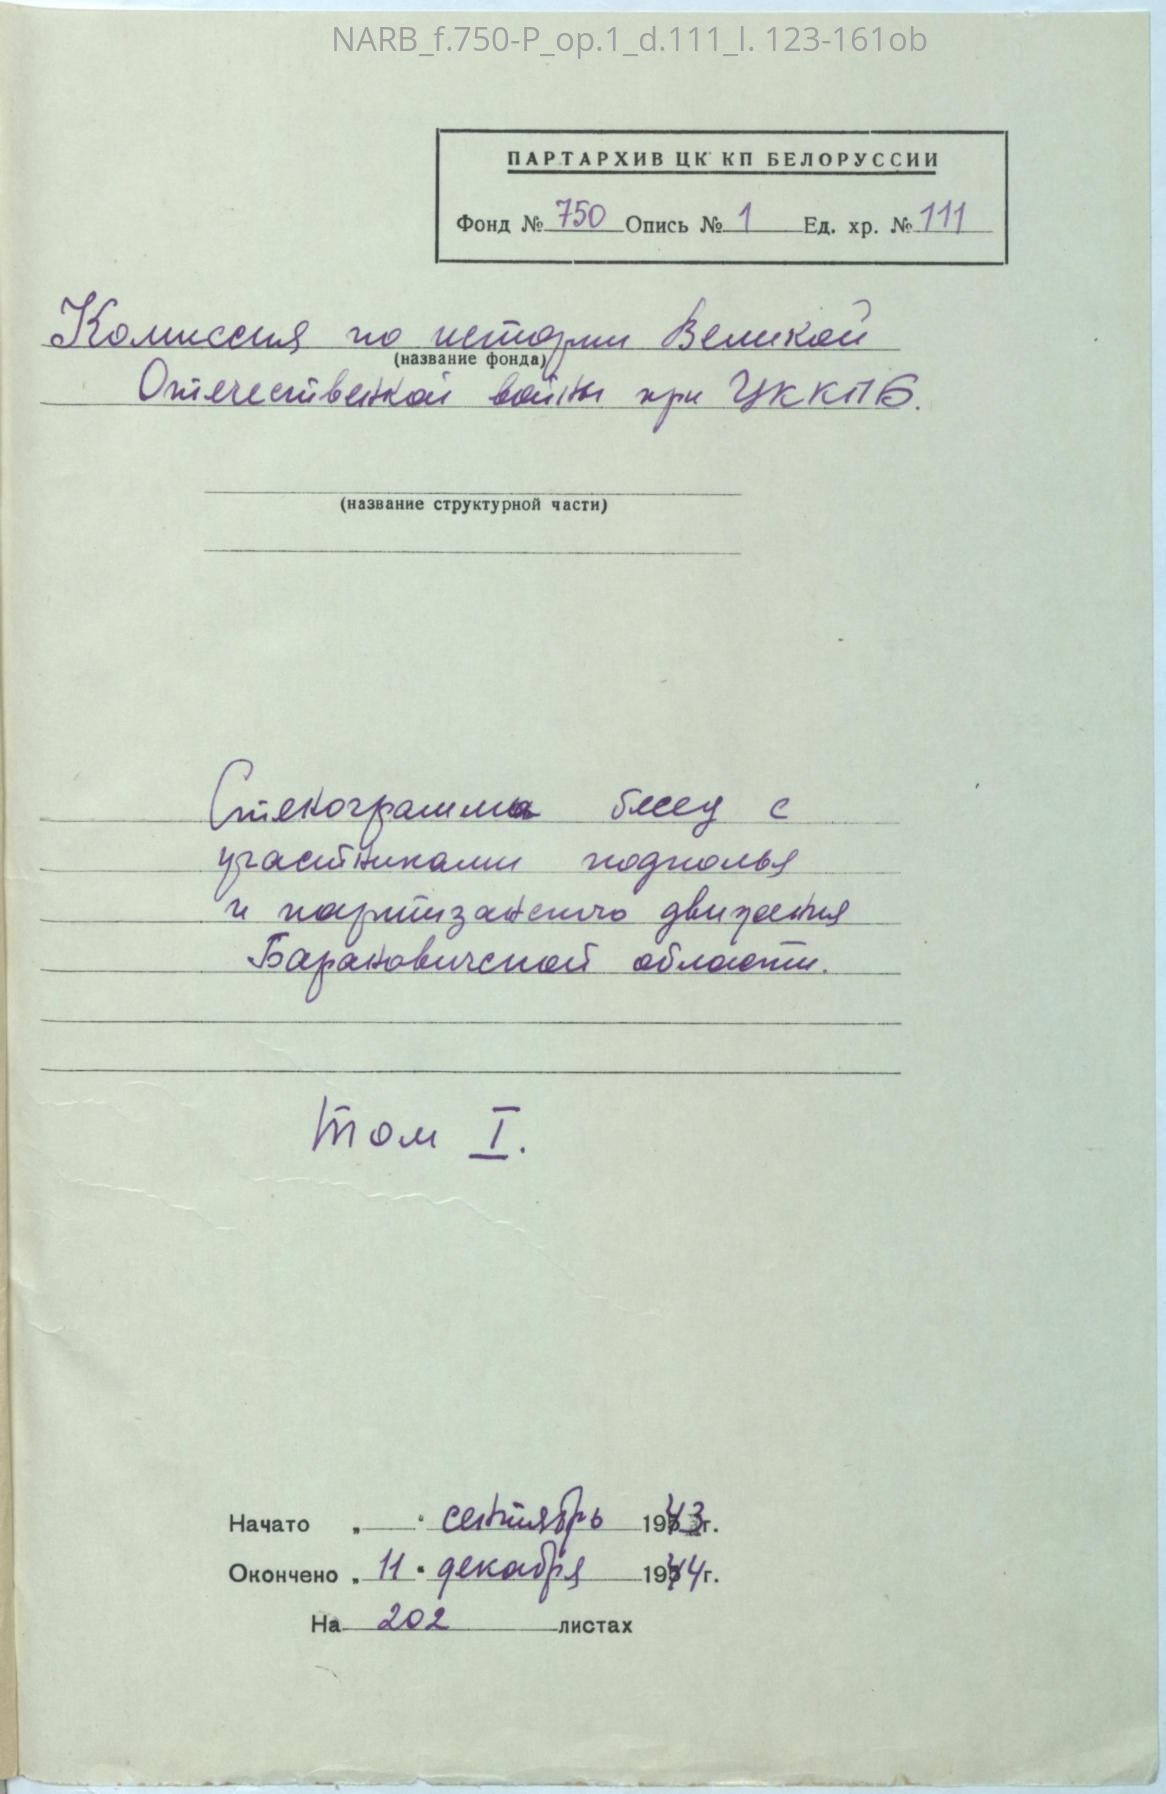 NARB_f.750-P_op.1_d.111_l. 123-161ob
ПАРТАРХИВ ЦК КП БЕЛОРУССИИ
Фонд № 750 Опись № 1 Ед. хр. № 111
Комиссия по истории Великой
(название фонда)
Отечественной войны при ЦК КПБ.
(название структурной части)
Стенограмма бесед с
участниками подполья
и партизанского движения
Барановичской области.
Том I.
Начато " " сентябрь 1943 г.
Окончено " 11 " декабря 1944 г.
На 202 листах